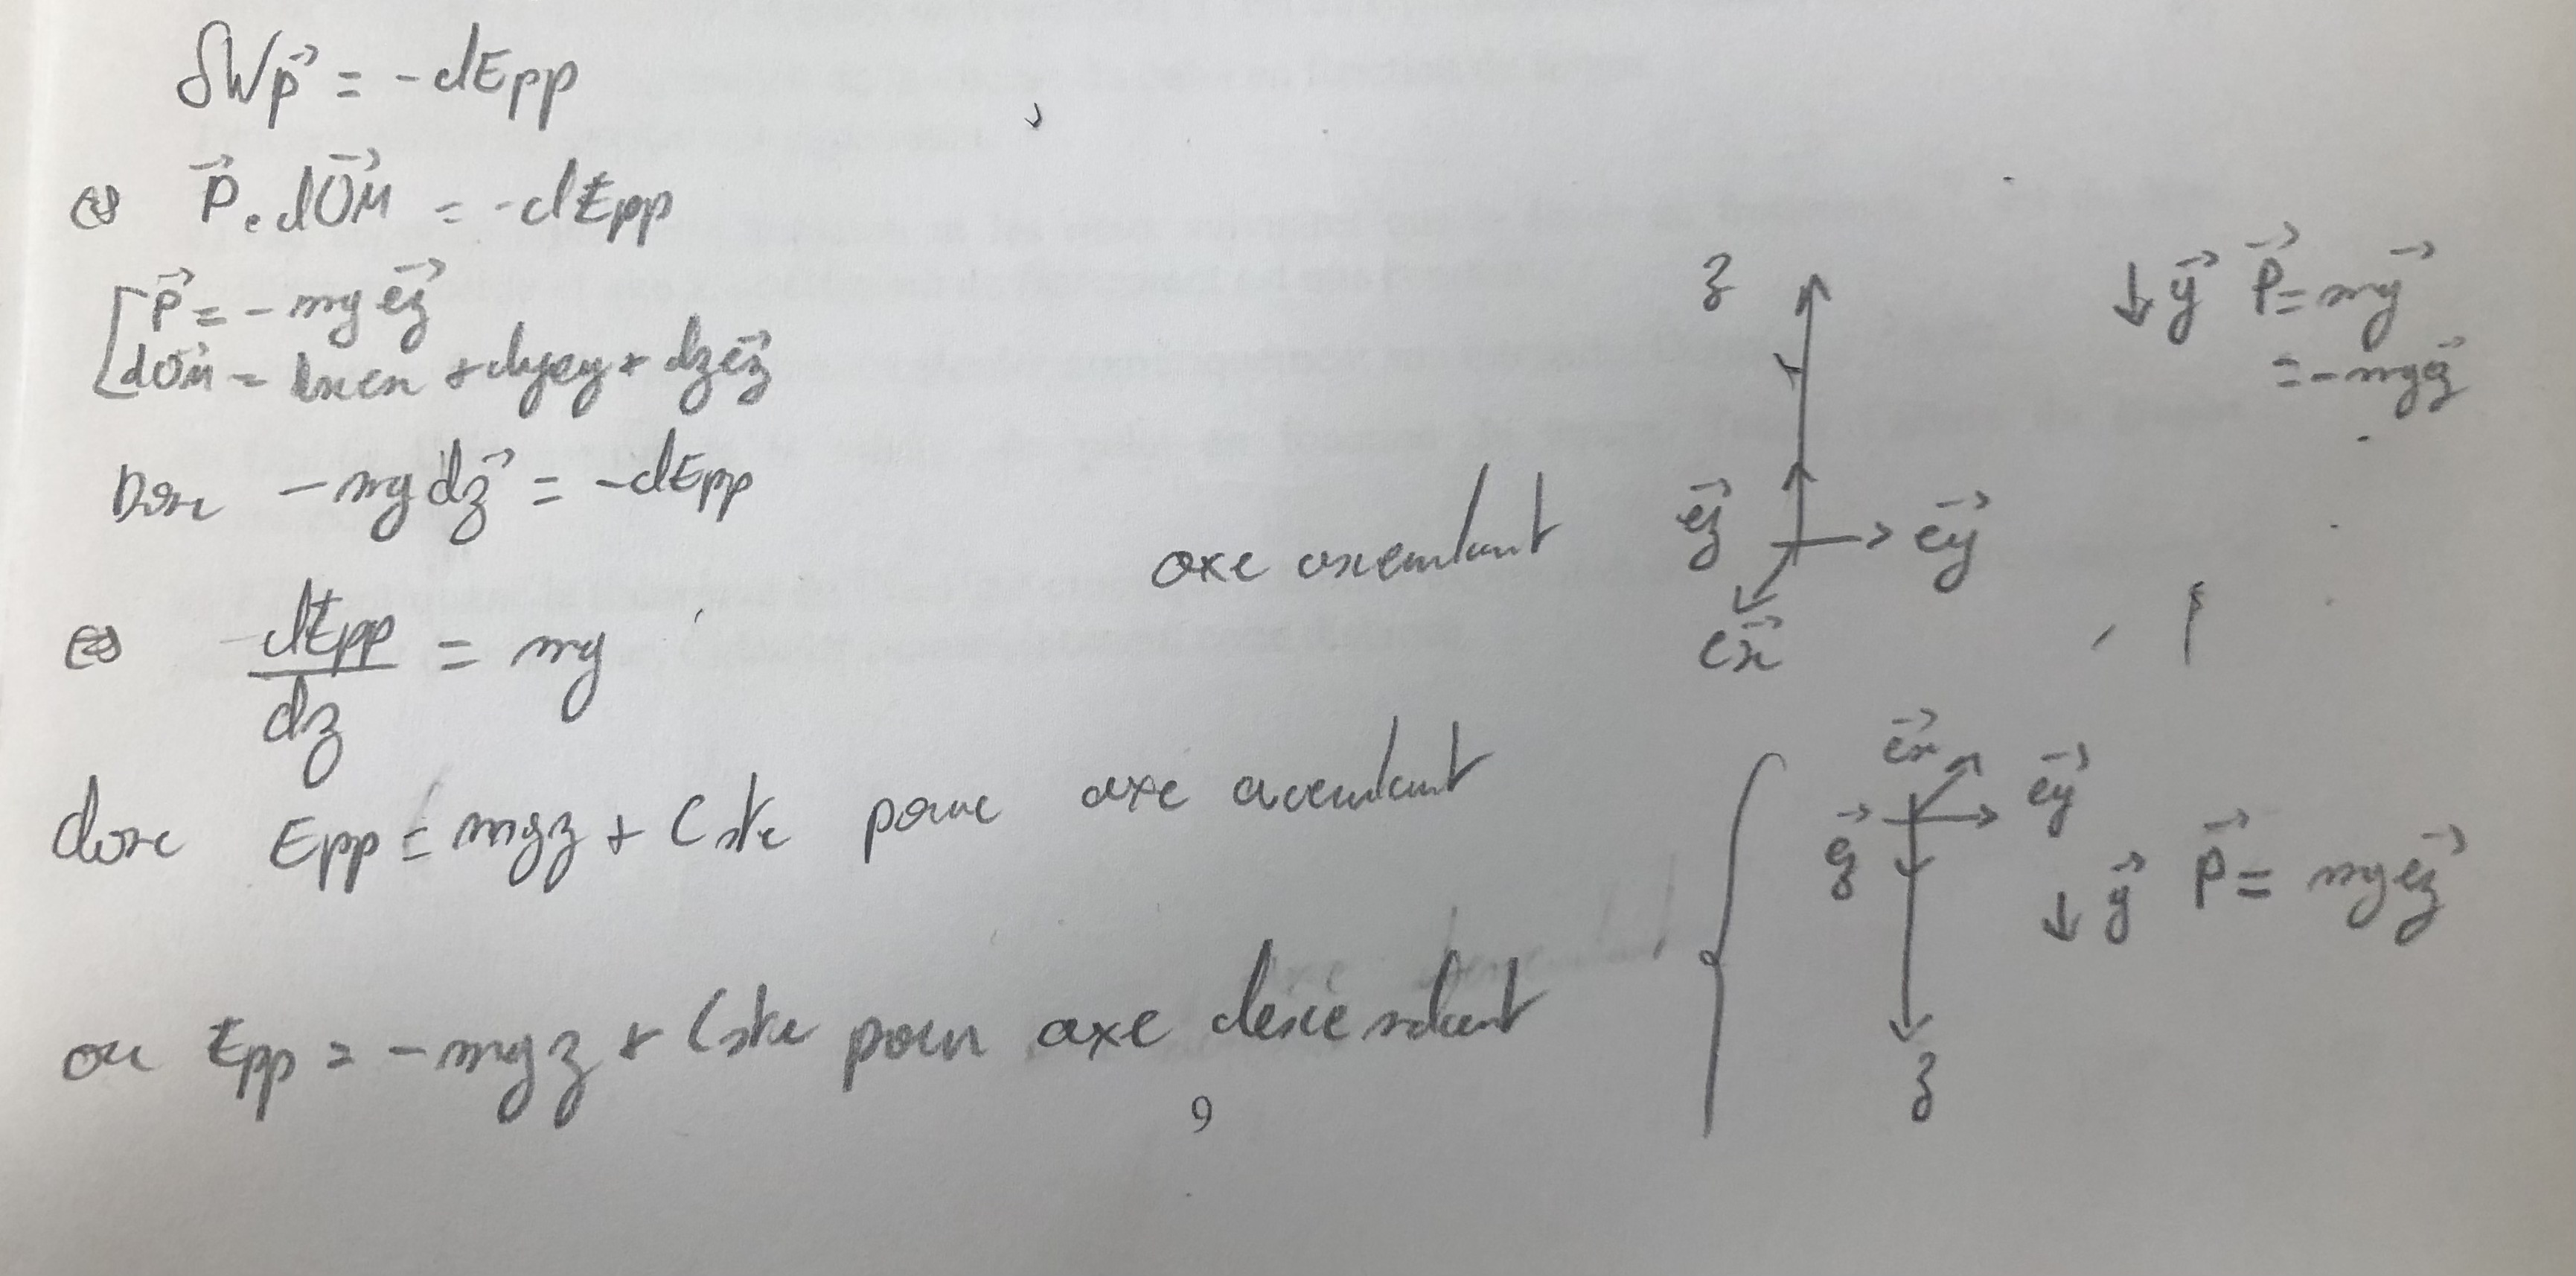 δWp⃗ = -dEpp
⇔ P⃗.dOM⃗ = -dEpp
[P⃗ = - mg ez⃗
dOM⃗ = dxex + dyey + dzez⃗
Donc - mg dz⃗ = -dEpp
⇔ dEpp/dz = mg
donc Epp = mgz + Cste pour axe ascendant
ou Epp = - mgz + Cste pour axe descendant
axe ascendant
z
↓ g⃗ P⃗ = mg⃗
= - mgez⃗
ez⃗
ey⃗
ex⃗
ex⃗
ey⃗
ez⃗
↓ g⃗ P⃗ = mgez⃗
z
9